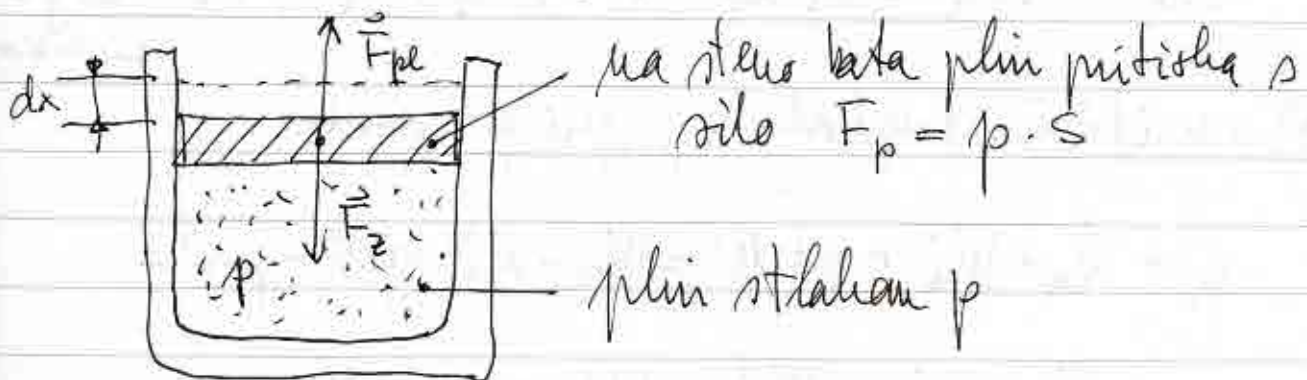 F_pl
dx
na steno bata plin pritiska s
silo F_p = p · S
F_z
p
plin s tlakom p